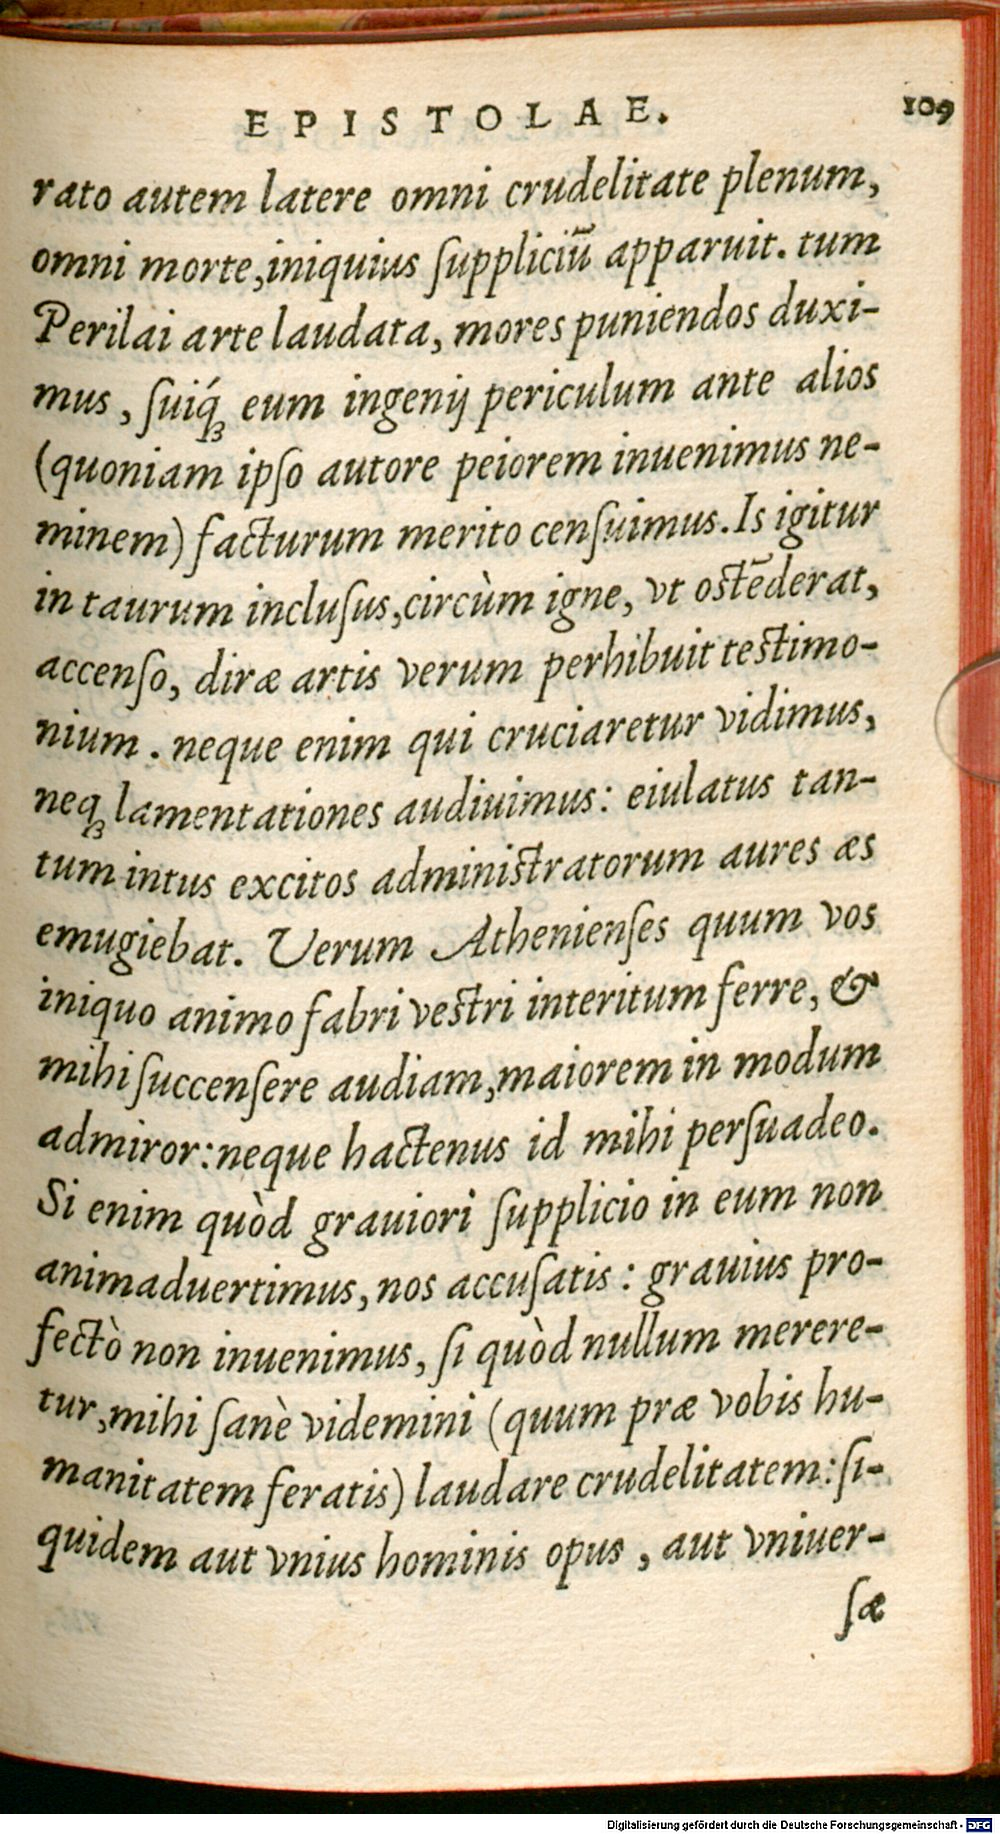 EPISTOLAE. 109
rato autem latere omni crudelitate plenum,
omni morte,iniquius ſuppliciū apparuit. tum
Perilai arte laudata, mores puniendos duxi-
mus, ſuiq́ꝫ eum ingenij periculum ante alios
(quoniam ipſo autore peiorem inuenimus ne-
minem) facturum merito cenſuimus. Is igitur
in taurum incluſus,circùm igne, vt oſtēderat,
accenſo, diræ artis verum perhibuit teſtimo-
nium. neque enim qui cruciaretur vidimus,
neqꝫ lamentationes audiuimus: eiulatus tan-
tum intus excitos adminiſtratorum aures æs
emugiebat. Verum Athenienſes quum vos
iniquo animo fabri veſtri interitum ferre, &
mihi ſuccenſere audiam,maiorem in modum
admiror:neque hactenus id mihi perſuadeo.
Si enim quòd grauiori ſupplicio in eum non
animaduertimus, nos accuſatis: grauius pro-
fectò non inuenimus, ſi quòd nullum merere-
tur,mihi ſanè videmini (quum præ vobis hu-
manitatem feratis) laudare crudelitatem:ſi-
quidem aut vnius hominis opus, aut vniuer-
ſæ
Digitalisierung gefördert durch die Deutsche Forschungsgemeinschaft - DFG